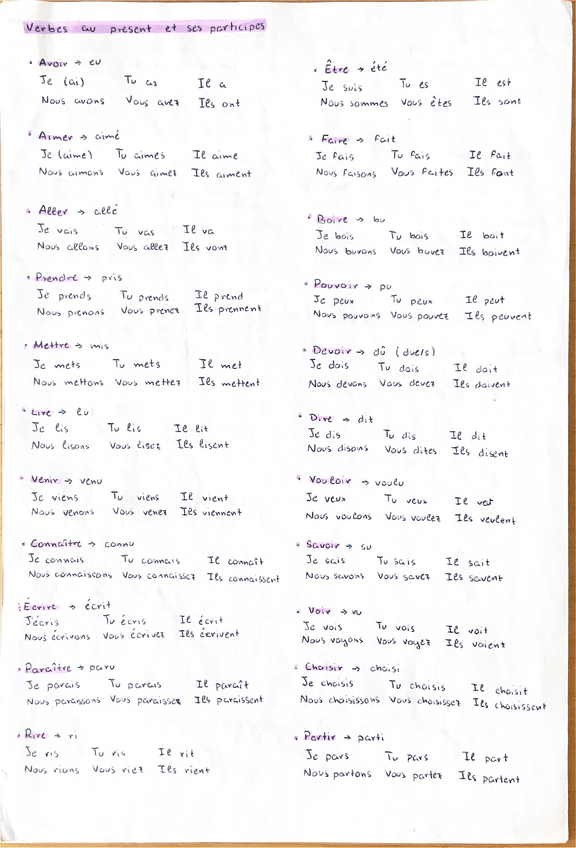 Verbes au present et ses participes
• Avoir → eu
Je (ai) Tu as Il a
Nous avons Vous avez Ils ont
• Aimer → aimé
Je (aime) Tu aimes Il aime
Nous aimons Vous aimez Ils aiment
• Aller → allé
Je vais Tu vas Il va
Nous allons Vous allez Ils vont
• Prendre → pris
Je prends Tu prends Il prend
Nous prenons Vous prenez Ils prennent
• Mettre → mis
Je mets Tu mets Il met
Nous mettons Vous mettez Ils mettent
• Lire → lu
Je lis Tu lis Il lit
Nous lisons Vous lisez Ils lisent
• Venir → venu
Je viens Tu viens Il vient
Nous venons Vous venez Ils viennent
• Connaître → connu
Je connais Tu connais Il connaît
Nous connaissons Vous connaissez Ils connaissent
• Écrire → écrit
J'écris Tu écris Il écrit
Nous écrivons Vous écrivez Ils écrivent
• Paraître → paru
Je parais Tu parais Il paraît
Nous paraissons Vous paraissez Ils paraissent
• Rire → ri
Je ris Tu ris Il rit
Nous rions Vous riez Ils rient
• Être → été
Je suis Tu es Il est
Nous sommes Vous êtes Ils sont
• Faire → fait
Je fais Tu fais Il fait
Nous faisons Vous faites Ils font
• Boire → bu
Je bois Tu bois Il boit
Nous buvons Vous buvez Ils boivent
• Pouvoir → pu
Je peux Tu peux Il peut
Nous pouvons Vous pouvez Ils peuvent
• Devoir → dû (du(e/s)
Je dois Tu dois Il doit
Nous devons Vous devez Ils doivent
• Dire → dit
Je dis Tu dis Il dit
Nous disons Vous dites Ils disent
• Vouloir → voulu
Je veux Tu veux Il
Nous voulons Vous voulez Ils veulent
• Savoir → su
Je sais Tu sais Il sait
Nous savons Vous savez Ils savent
• Voir → vu
Je vois Tu vois Il voit
Nous voyons Vous voyez Ils voient
• Choisir → choisi
Je choisis Tu choisis Il choisit
Nous choisissons Vous choisissez Ils choisissent
• Partir → parti
Je pars Tu pars Il part
Nous partons Vous partez Ils partent